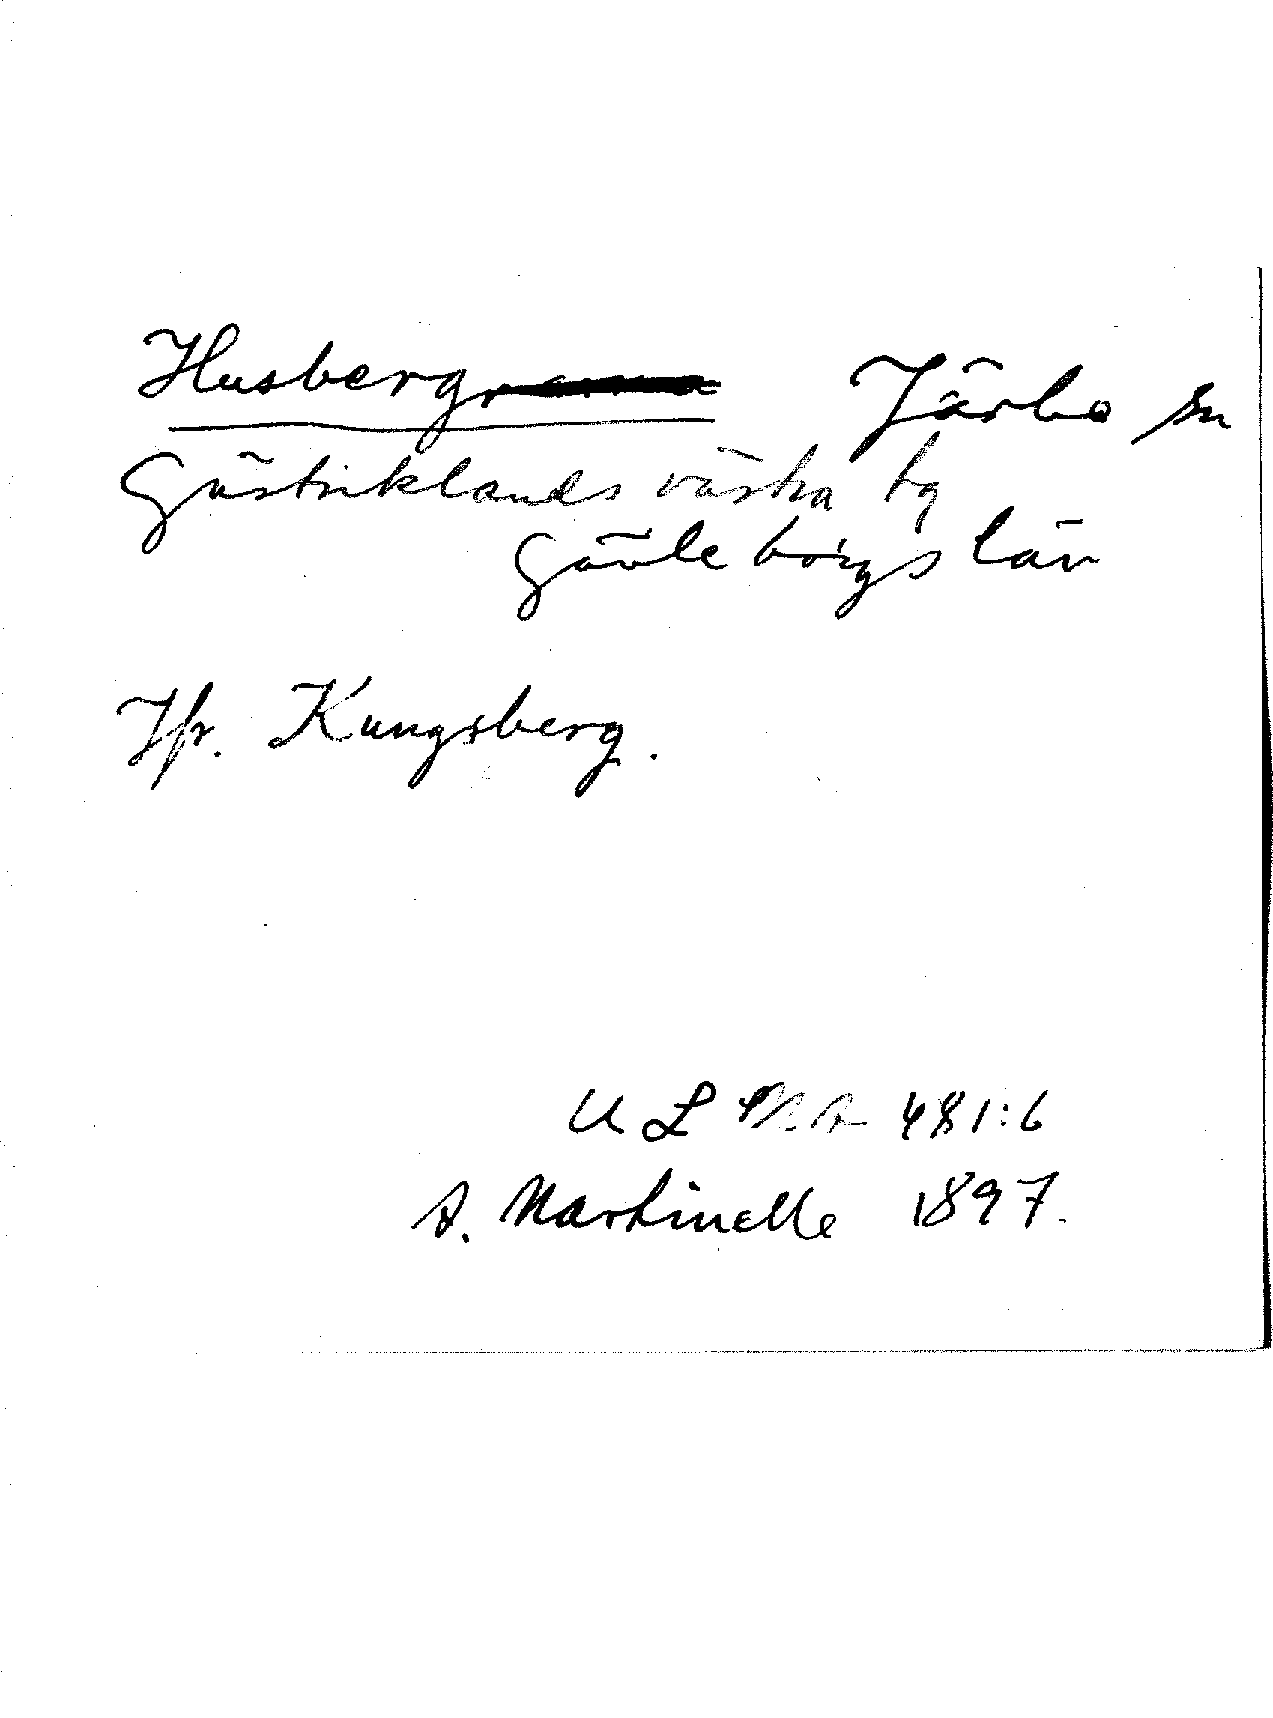 Husberg Järbo sn
Gästriklands västra tg
Gävleborgs län
Jfr. Kungsberg.
ULMA 481:6
A. Martinelle 1897.